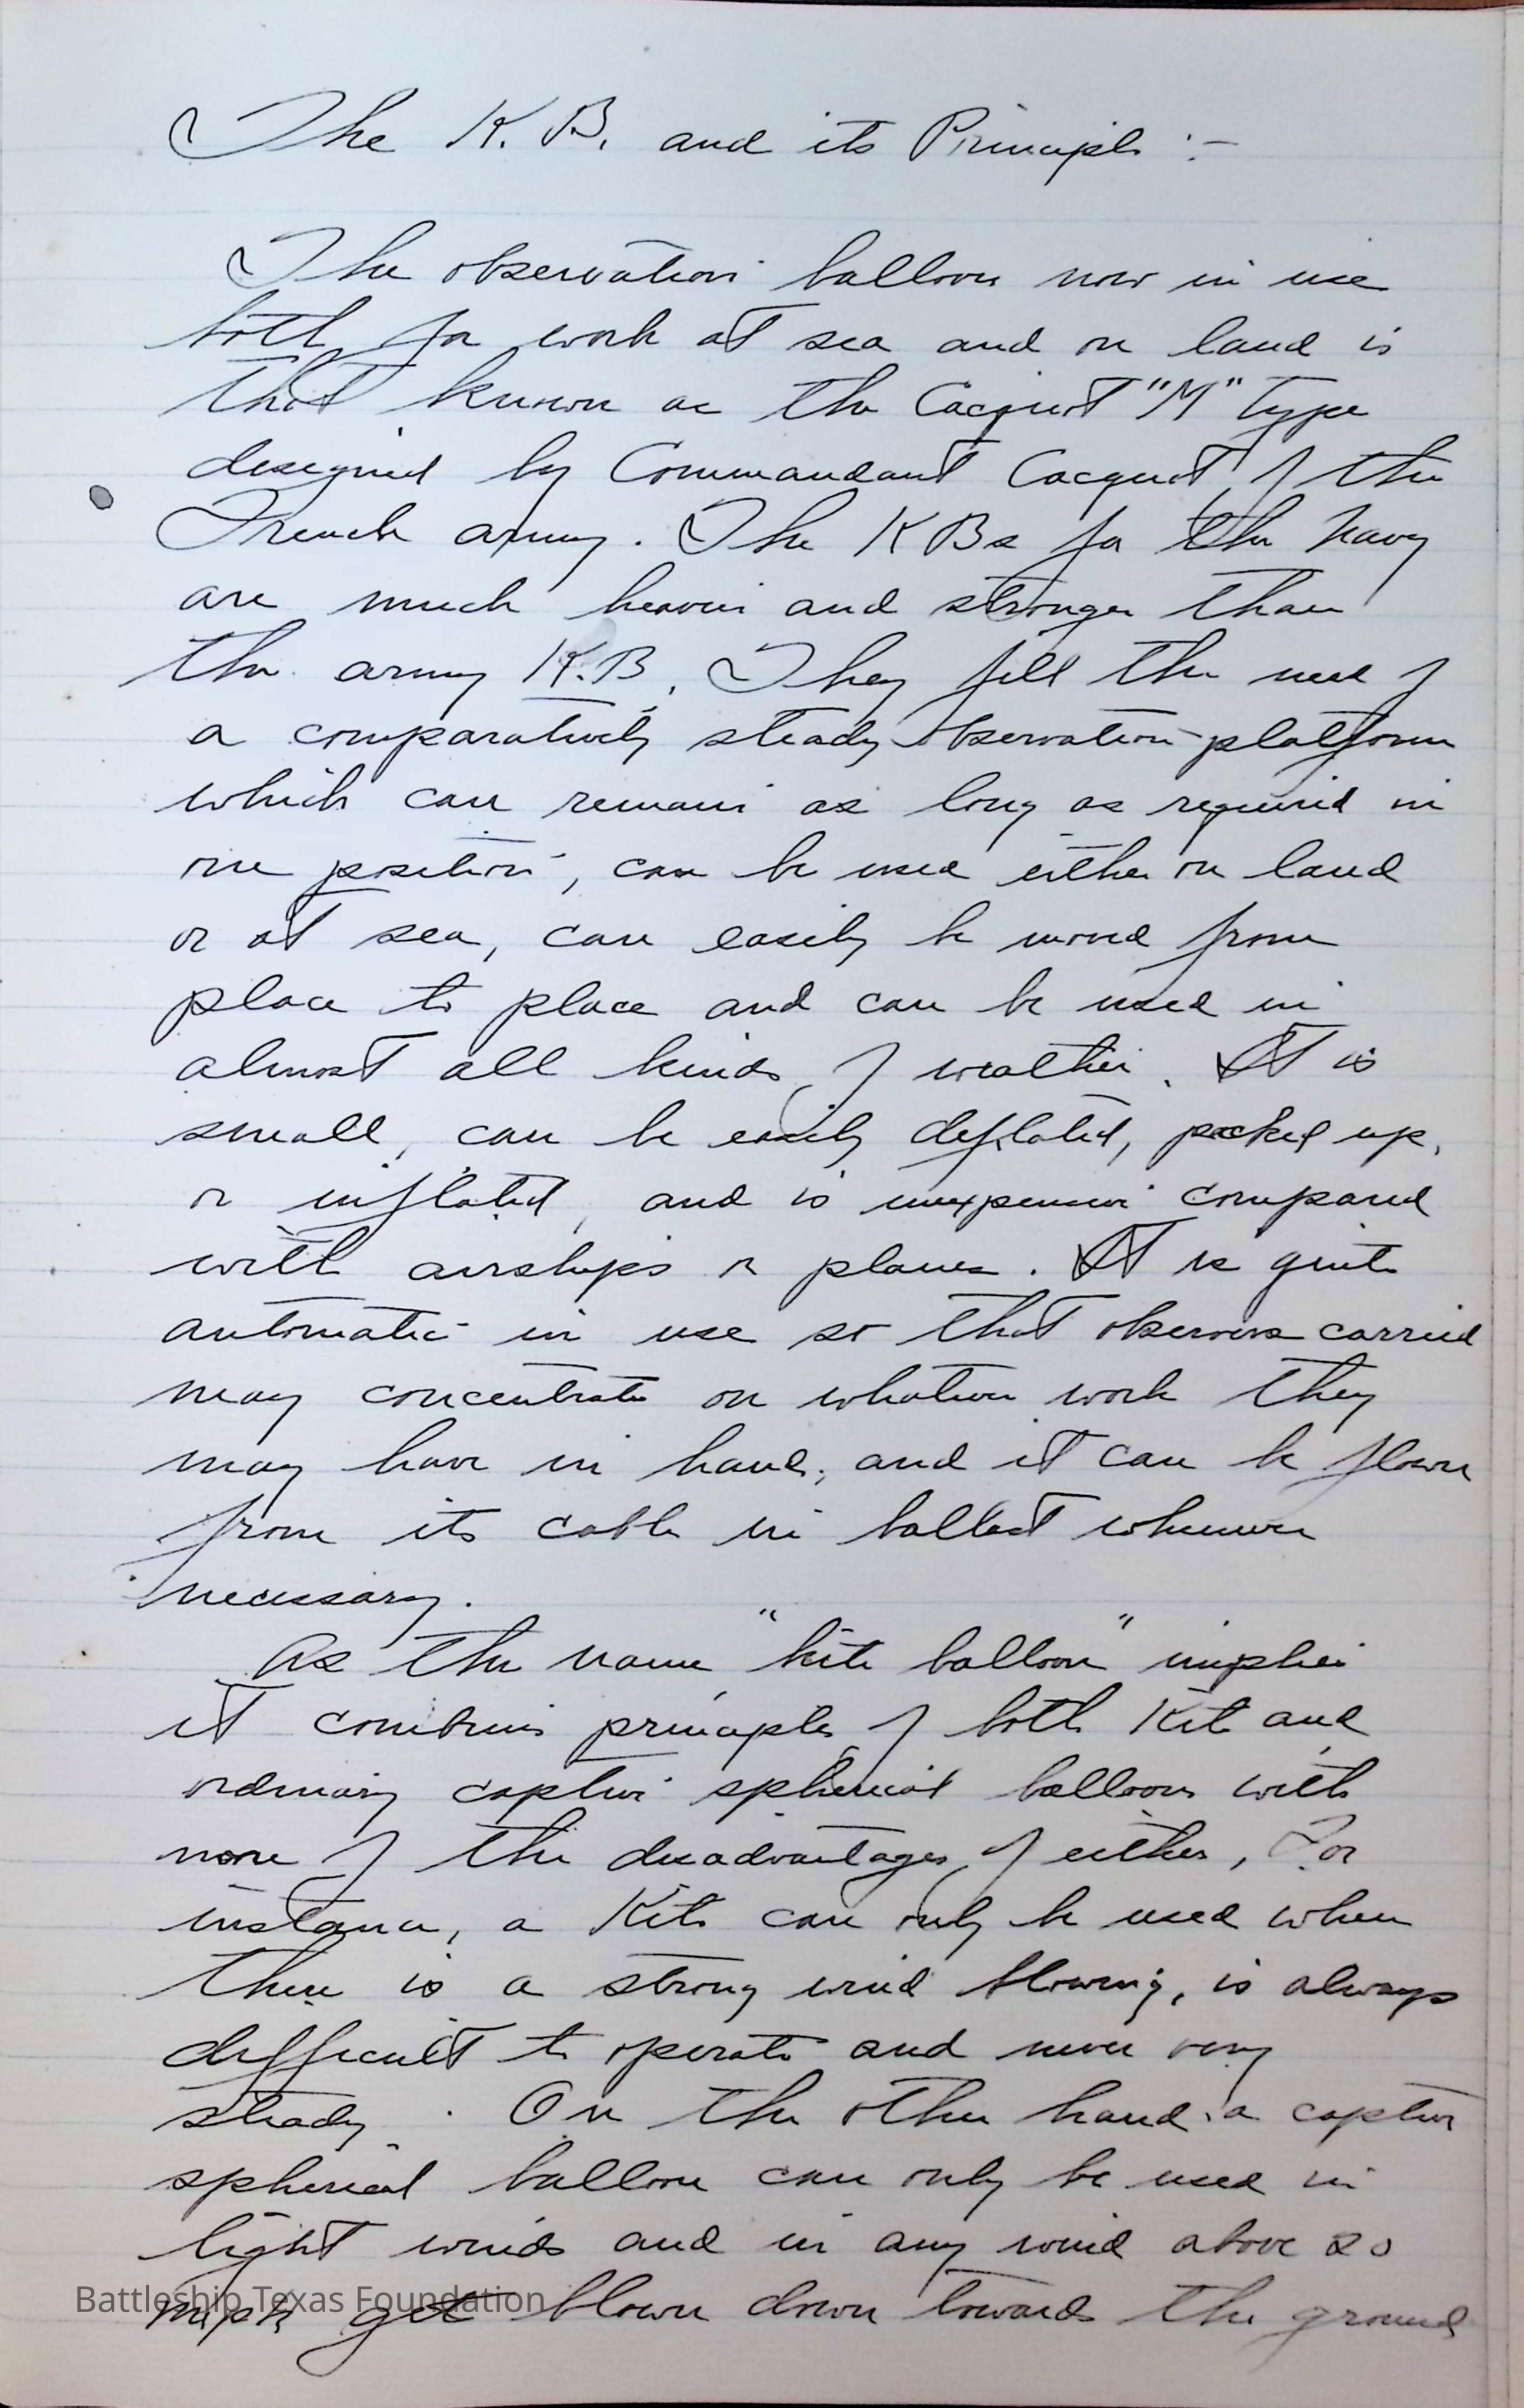 The K. B. and its Principle :-
The observation balloon now in use
both for work at sea and on land is
that known as the Cacquot "M" type
designed by Commandant Cacquot of the
French army. The KBs for the Navy
are much heavier and stronger than
the army K.B. They fill the need of
a comparatively steady observation-platform
which can remain as long as required in
one position, can be used either on land
or at sea, can easily be moved from
place to place and can be used in
almost all kinds of weather. It is
small, can be easily deflated, packed up,
or inflated, and is inexpensive compared
with airships or planes. It is quite
automatic in use so that observers carried
may concentrate on whatever work they
may have in hand; and it can be flown
from its cable in ballast whenever
necessary.
As the name "kite balloon" implies
it combines principles of both Kite and
ordinary captive spherical balloons with
none of the disadvantages of either, For
instance, a Kite can only be used when
there is a strong wind blowing, is always
difficult to operate and never very
steady. On the other hand a captive
spherical balloon can only be used in
light winds and in any wind above 20
mph get blown down towards the ground
Battleship Texas Foundation